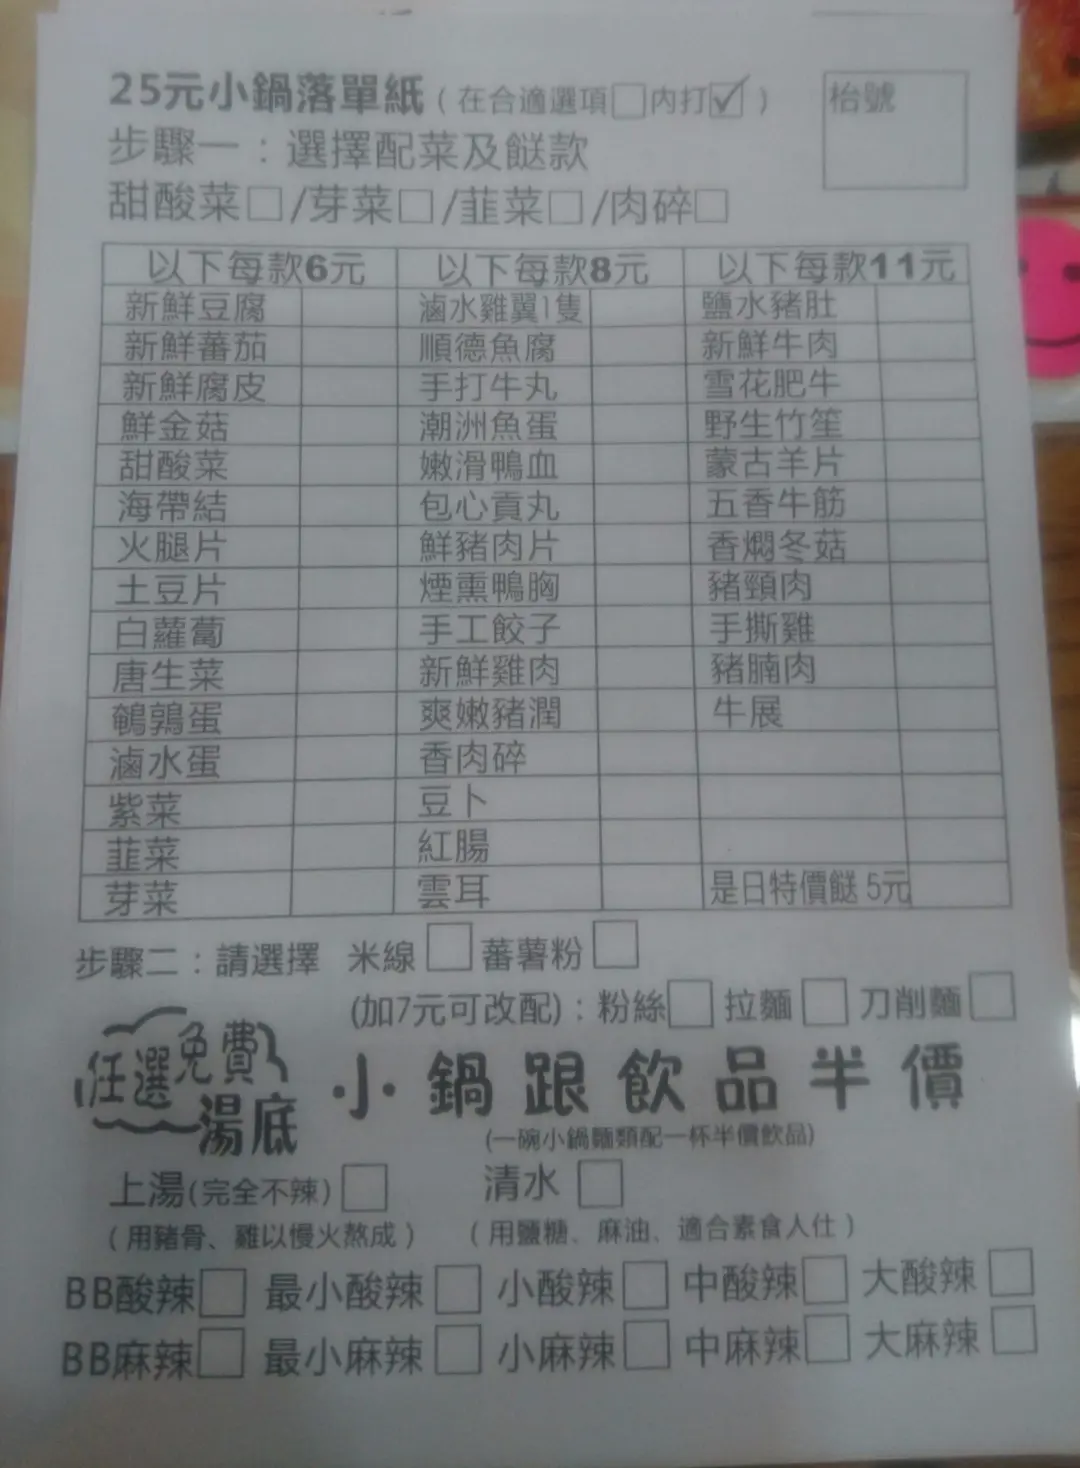 25元小鍋落單紙（在合適選項□內打☑）
枱號
步驟一：選擇配菜及餸款
甜酸菜□/芽菜□/韮菜□/肉碎□
以下每款6元 以下每款8元 以下每款11元
新鮮豆腐 滷水雞翼1隻 鹽水豬肚
新鮮蕃茄 順德魚腐 新鮮牛肉
新鮮腐皮 手打牛丸 雪花肥牛
鮮金菇 潮洲魚蛋 野生竹笙
甜酸菜 嫩滑鴨血 蒙古羊片
海帶結 包心貢丸 五香牛筋
火腿片 鮮豬肉片 香燜冬菇
土豆片 煙熏鴨胸 豬頸肉
白蘿蔔 手工餃子 手撕雞
唐生菜 新鮮雞肉 豬腩肉
鵪鶉蛋 爽嫩豬潤 牛展
滷水蛋 香肉碎
紫菜 豆卜
韮菜 紅腸
芽菜 雲耳 是日特價餸 5元
步驟二：請選擇 米線□ 蕃薯粉□
(加7元可改配)：粉絲□ 拉麵□ 刀削麵□
任選免費湯底
小鍋跟飲品半價
(一碗小鍋麵類配一杯半價飲品)
上湯(完全不辣)□ 清水□
（用豬骨、雞以慢火熬成）（用鹽糖、麻油、適合素食人仕）
BB酸辣□ 最小酸辣□ 小酸辣□ 中酸辣□ 大酸辣□
BB麻辣□ 最小麻辣□ 小麻辣□ 中麻辣□ 大麻辣□